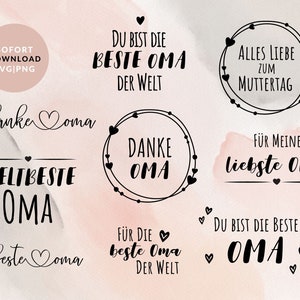 SOFORT
DOWNLOAD
SVG|PNG
DU BIST DIE
BESTE OMA
DER WELT
ALLES LIEBE
ZUM
MUTTERTAG
danke oma
DANKE
OMA
FÜR MEINE
liebste
WELTBESTE
OMA
beste oma
FÜR DIE
beste Oma
DER WELT
DU BIST DIE BESTE
OMA